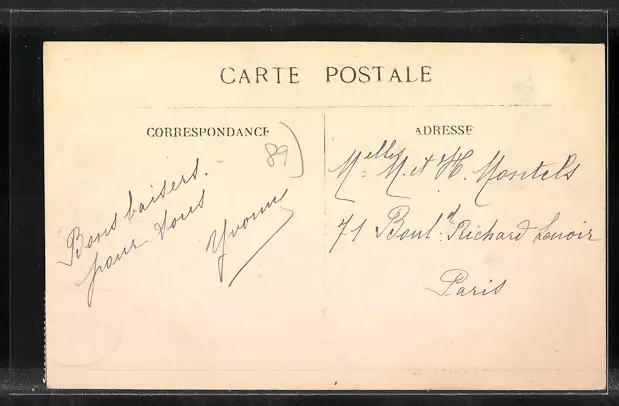 CARTE POSTALE
CORRESPONDANCE
89
Bons baisers.
pour vous
Yvonne
ADRESSE
Melles M. et H. Montels
71 Boul.d Richard Lenoir
Paris